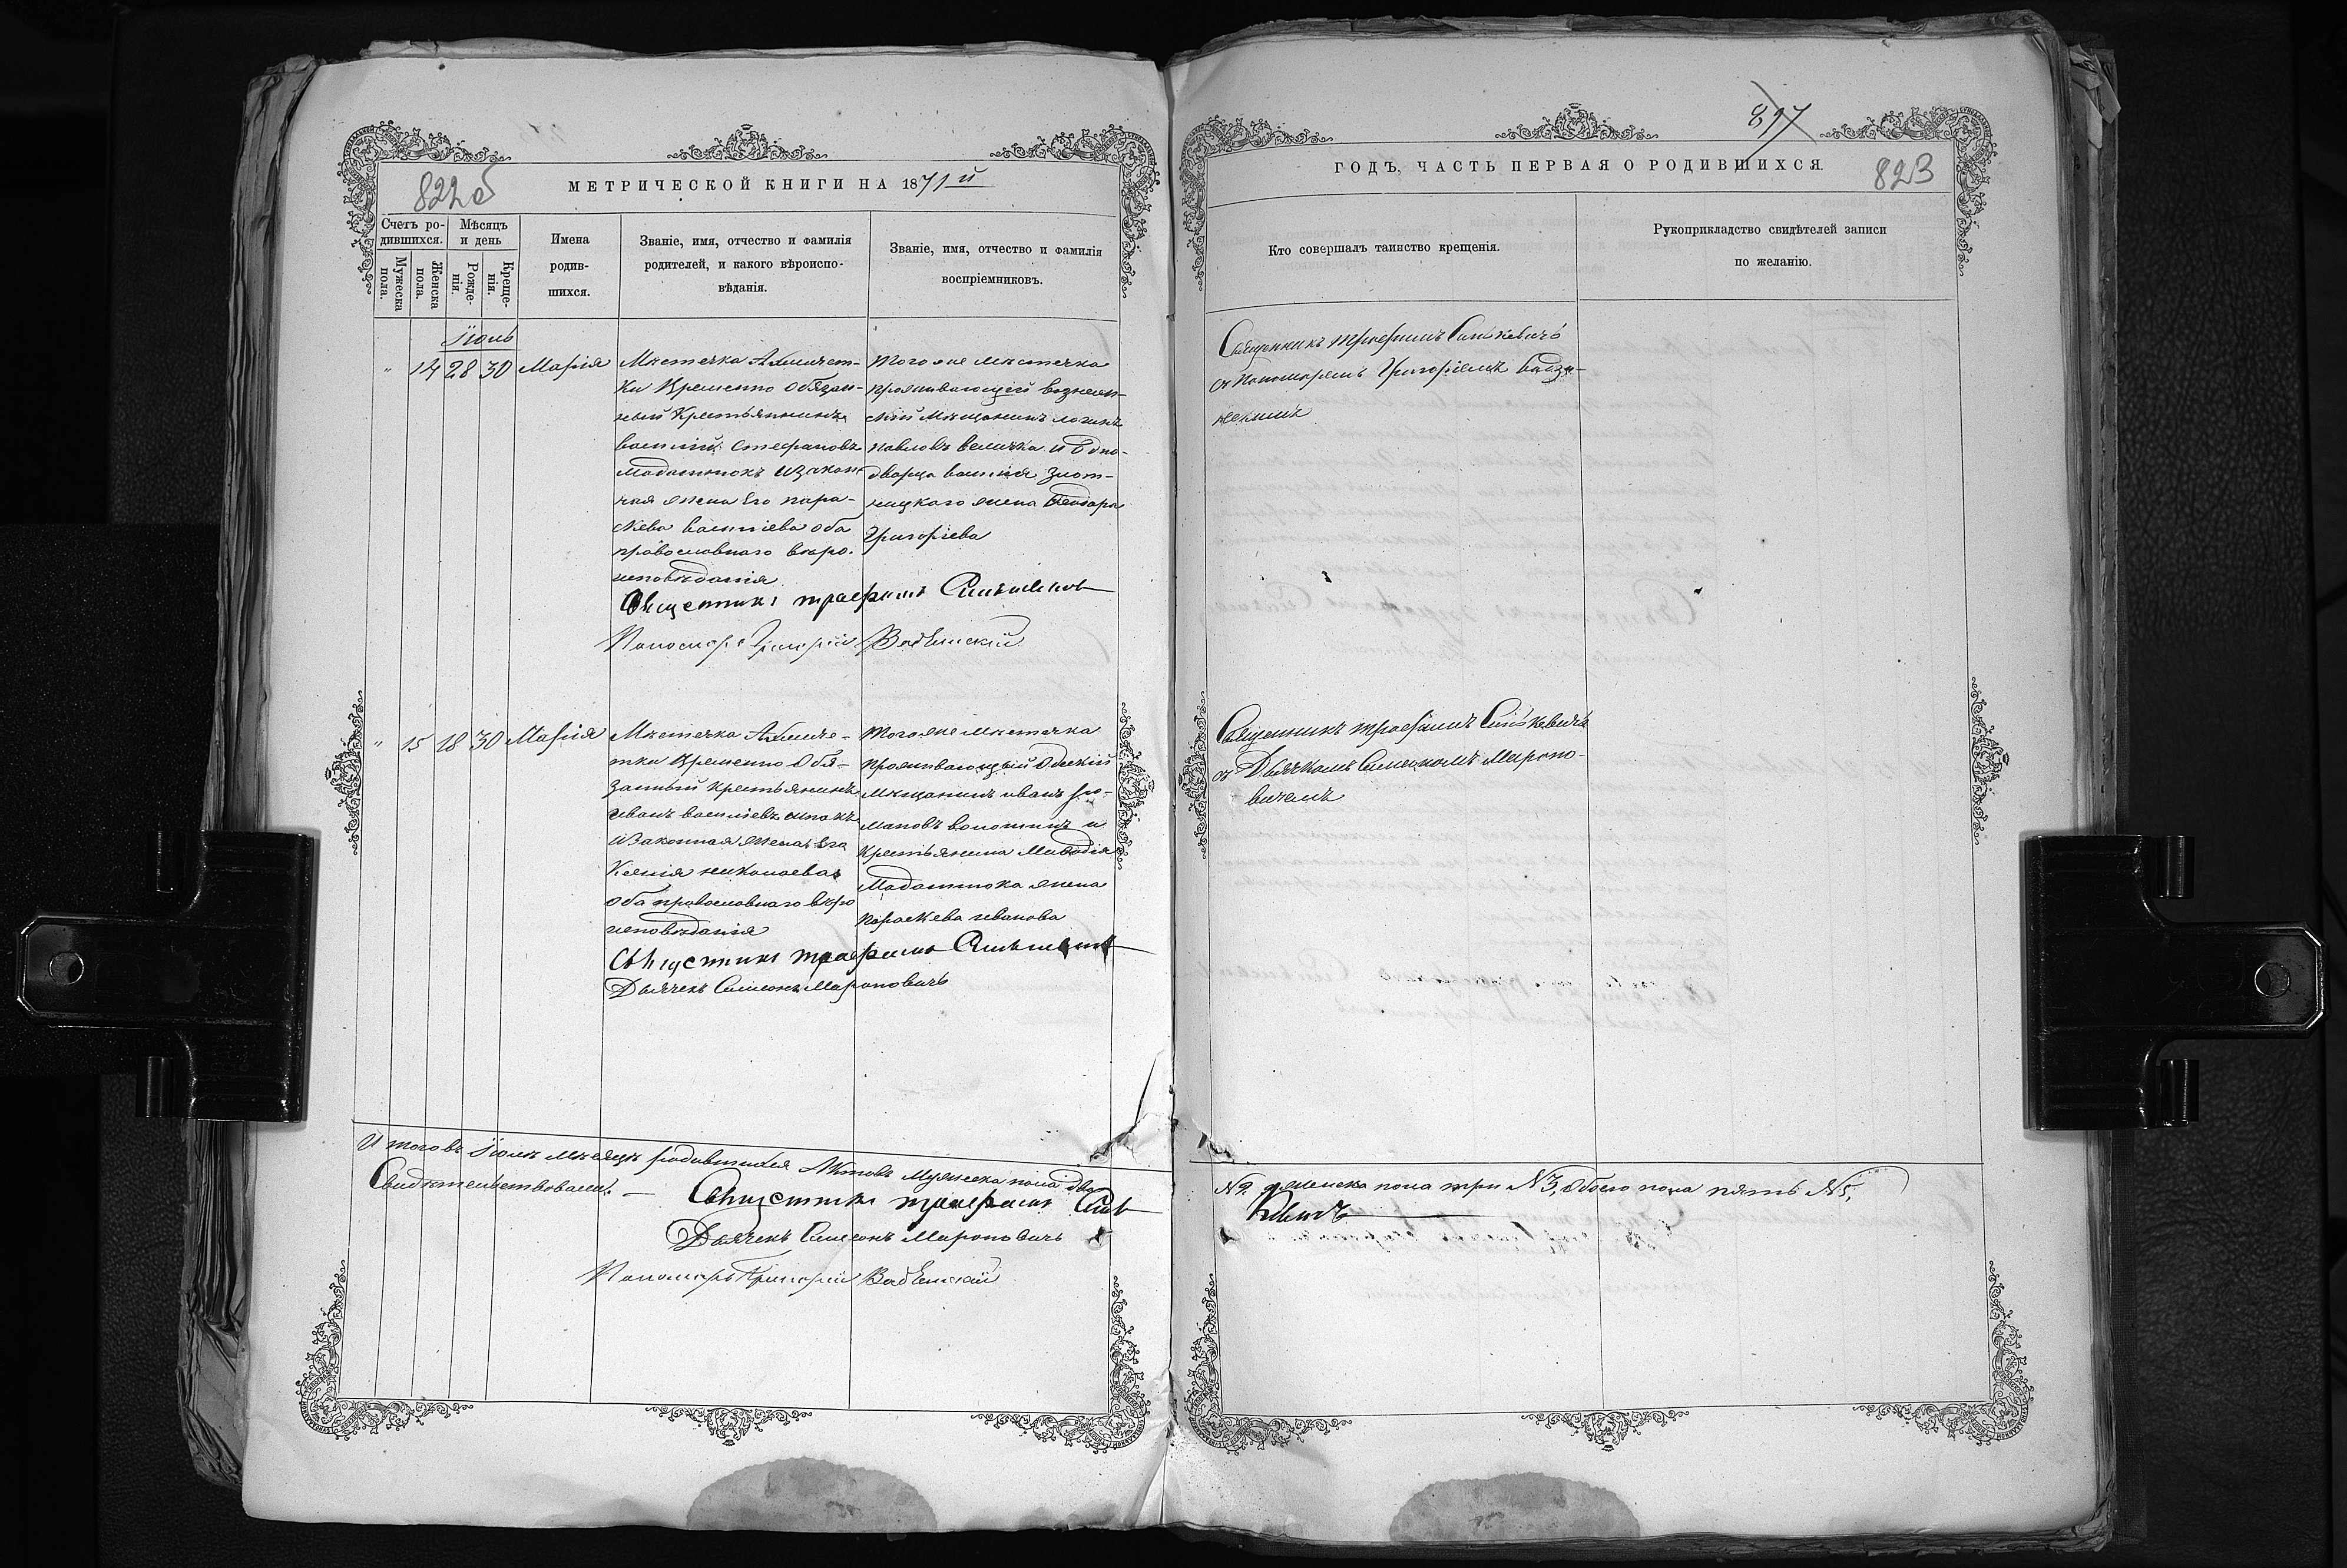 822 об
МЕТРИЧЕСКОЙ КНИГИ НА 1871й
Счетъ ро-
дившихся.
Мѣсяцъ
и день
Мужеска
пола.
Женска
пола.
Рожде-
нія.
Креще-
нія.
Имена
родив-
шихся.
Званіе, имя, отчество и фамилія
родителей, и какого вѣроиспо-
вѣданія.
Званіе, имя, отчество и фамилія
воспріемниковъ.
Іюль
" 14 28 30 Марія
Мѣстечка
ки Временно обязан-
ный Крестьянинъ
Василій Стефановъ
законъ
ная жена Его Пара-
скева Василіева оба
православнаго вѣро-
исповѣданія
Тогоже мѣстечка
проживающій вознесен-
скій Мѣщанинъ Логинъ
Павловъ Величка и Одно-
дворца Василія Злот-
ницкаго жена Феодора
Григоріева
Священникъ Трофимъ Синькевичъ
Пономарь Григорій
" 15 18 30 Марія
Мѣстечка
тки Временно Обя-
занный Крестьянинъ
Иванъ Василіевъ
и законная жена Его
Ксенія Николаева
оба православнаго вѣро
исповѣданія
Тогоже мѣстечка
проживающій Одескій
Мѣщанинъ Иванъ Ро-
мановъ Волошинъ и
Крестьянина
жена
Параскева Иванова
Священникъ Трофимъ Синькевичъ
Дьячекъ Симеонъ Мироновичъ
Итого въ Іюлѣ мѣсяцѣ родившихся Актовъ Мужеска пола два
Свидѣтельствовали: — Священникъ Трофимъ Синь
Дьячекъ Симеонъ Мироновичъ
Пономарь Григорій
817
ГОДЪ, ЧАСТЬ ПЕРВАЯ О РОДИВШИХСЯ.
823
Кто совершалъ таинство крещенія.
Рукоприкладство свидѣтелей записи
по желанію.
Священникъ Трофимъ Синькевичъ
съ Пономаремъ Григоріемъ
Священникъ Трофимъ Синькевичъ
съ Дьячкомъ Симеономъ Мироно-
вичемъ
№2. женска пола три №3, Обоего пола пять №5,
кевичъ